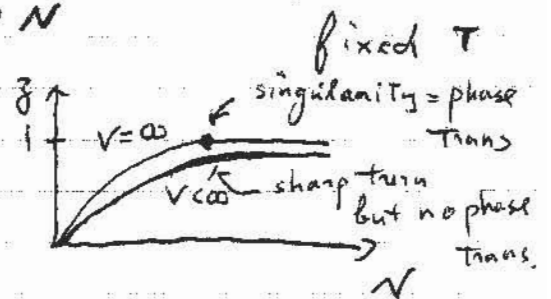 N
fixed T
singularity = phase
trans
z
1
V = ∞
V < ∞
sharp turn
but no phase
trans.
N